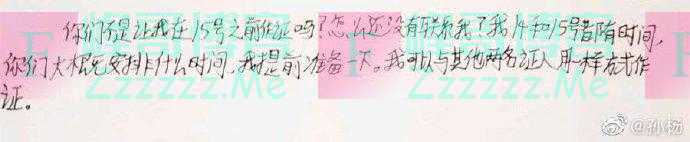 你们不是让我在15号之前作证吗?怎么还没有联系我?我14和15号皆有时间,
你们大概安排什么时间,我提前准备一下。我可以与其他两名证人用一样方式作
证。
ZZZZZ.Me
ZZZZZ.Me
@孙杨